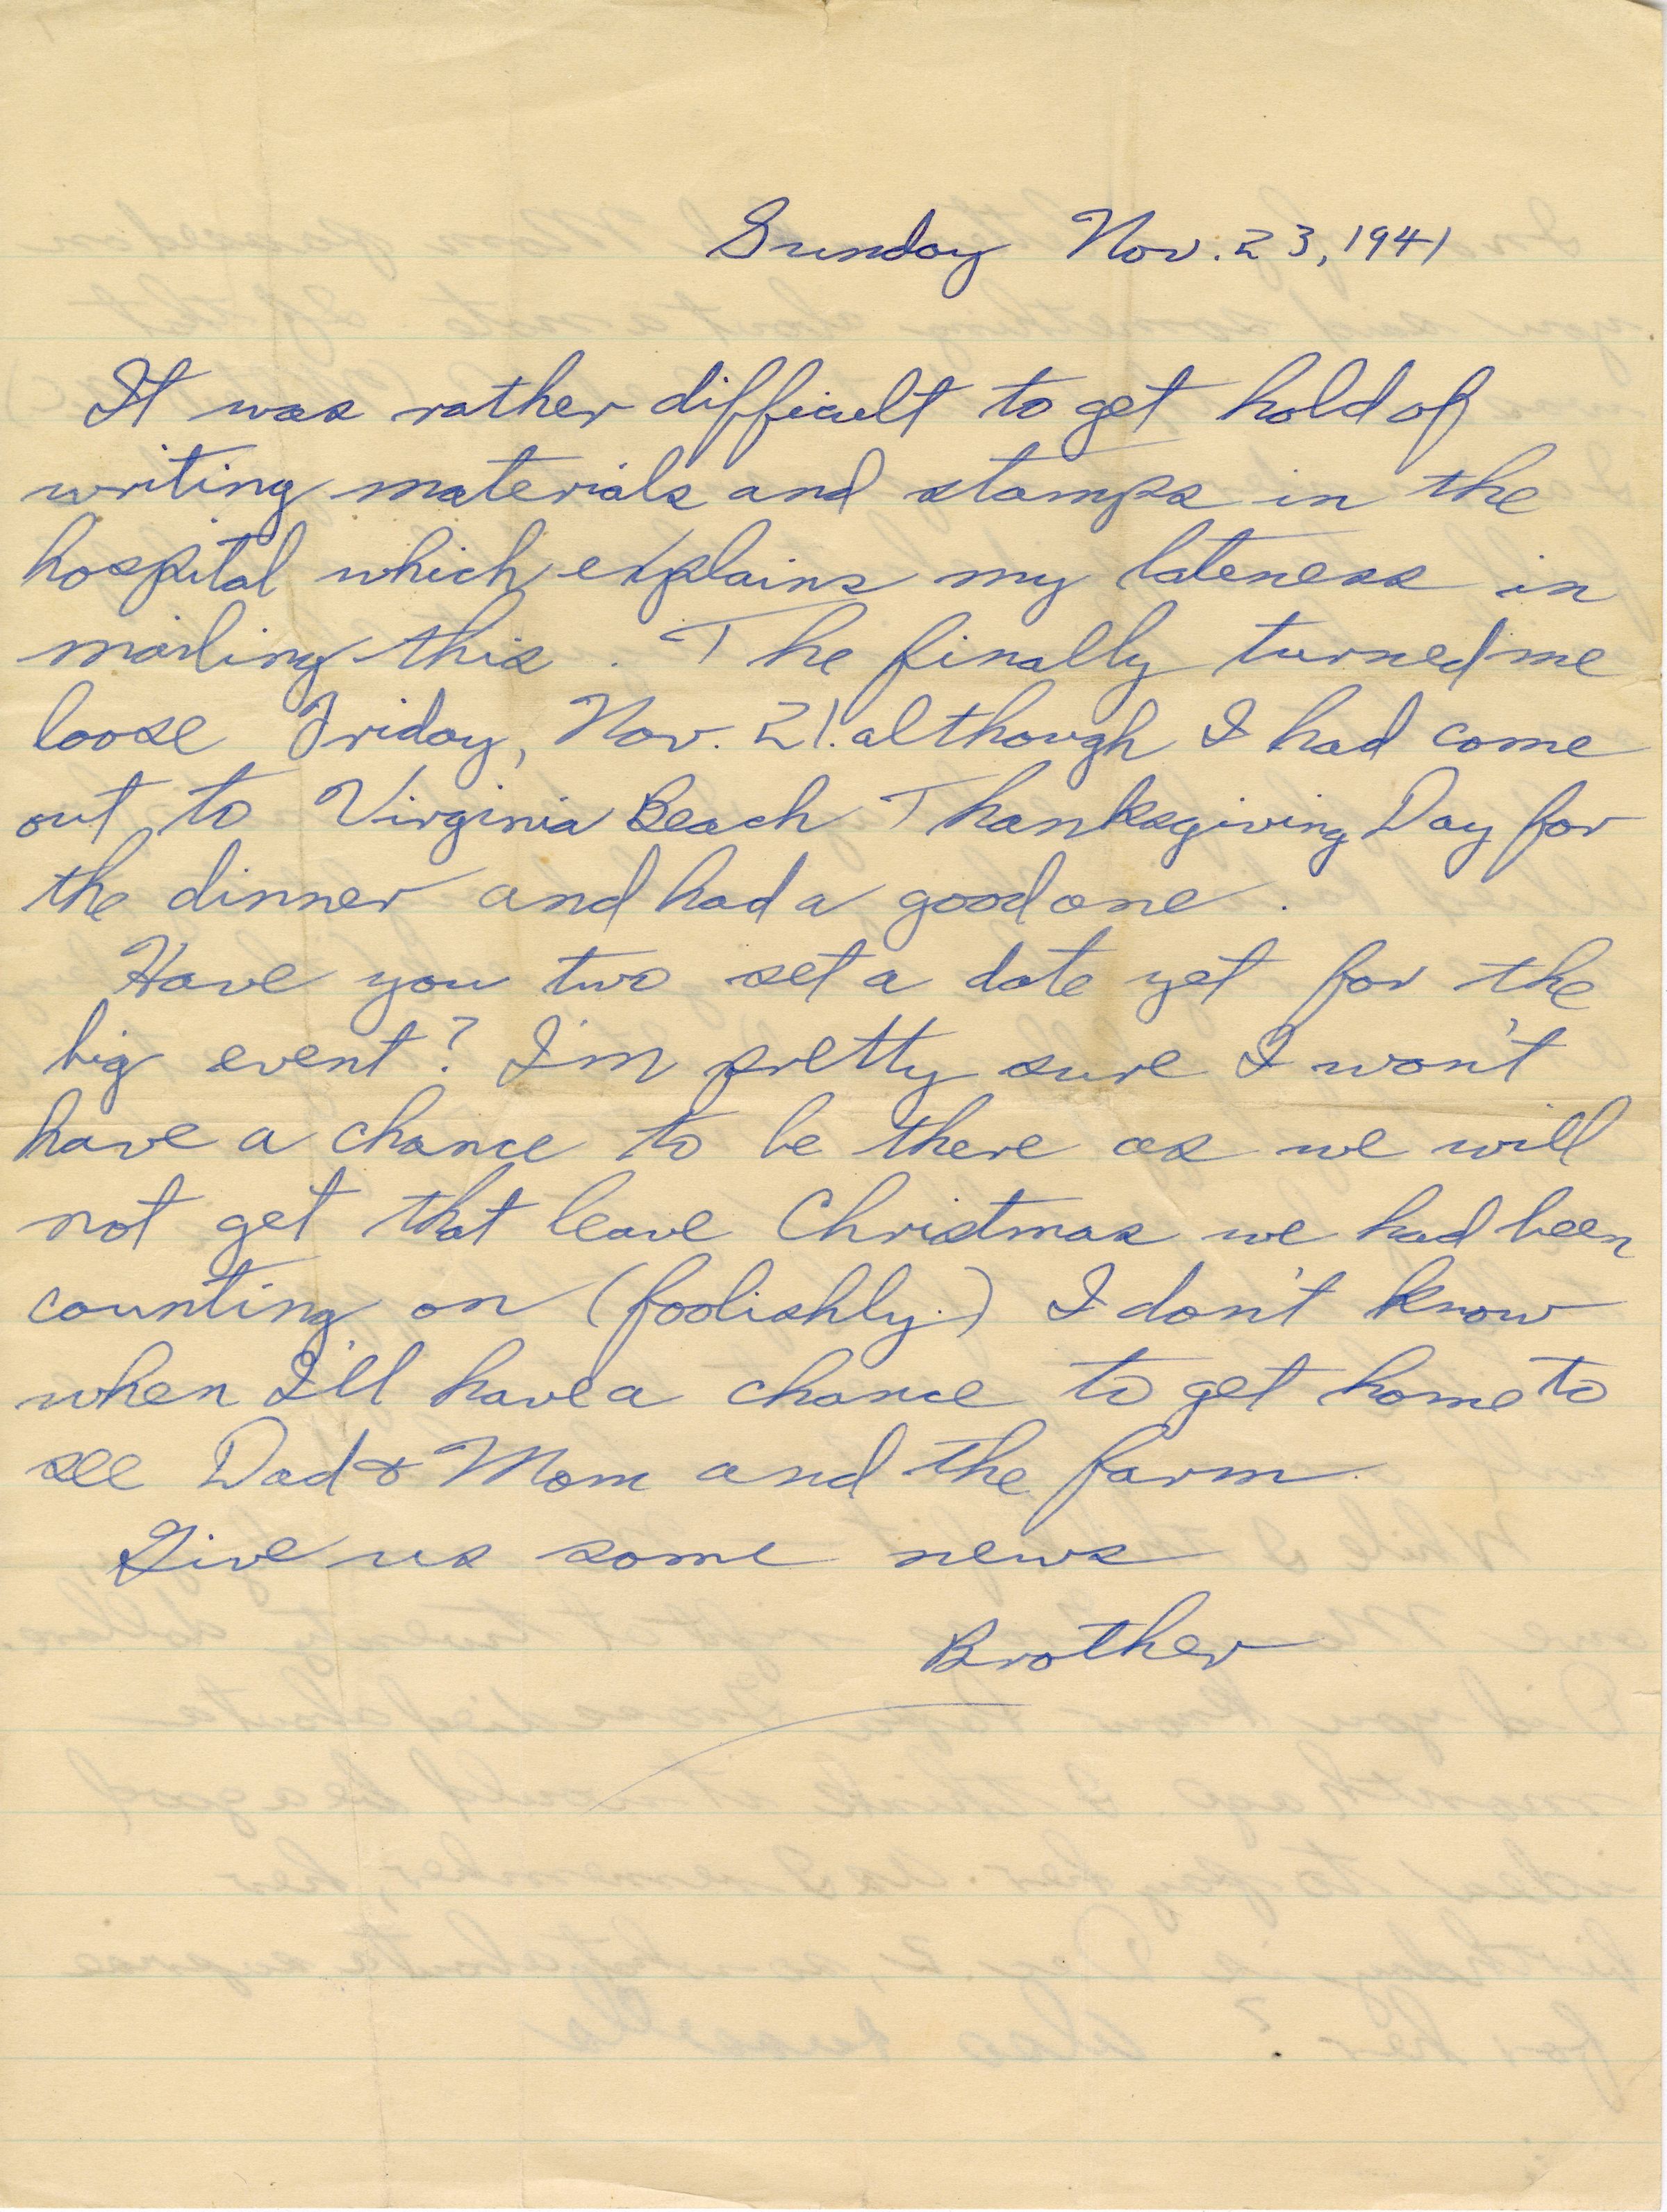 Sunday Nov. 23, 1941
It was rather difficult to get hold of
writing materials and stamps in the
hospital which explains my lateness in
mailing this. The finally turned me
loose Friday, Nov. 21. although I had come
out to Virginia Beach Thanksgiving Day for
the dinner and had a good one.
Have you two set a date yet for the
big event? I'm pretty sure I won't
have a chance to be there as we will
not get that leave Christmas we had been
counting on (foolishly.) I don't know
when I'll have a chance to get home to
see Dad & Mom and the farm.
Give us some news
Brother